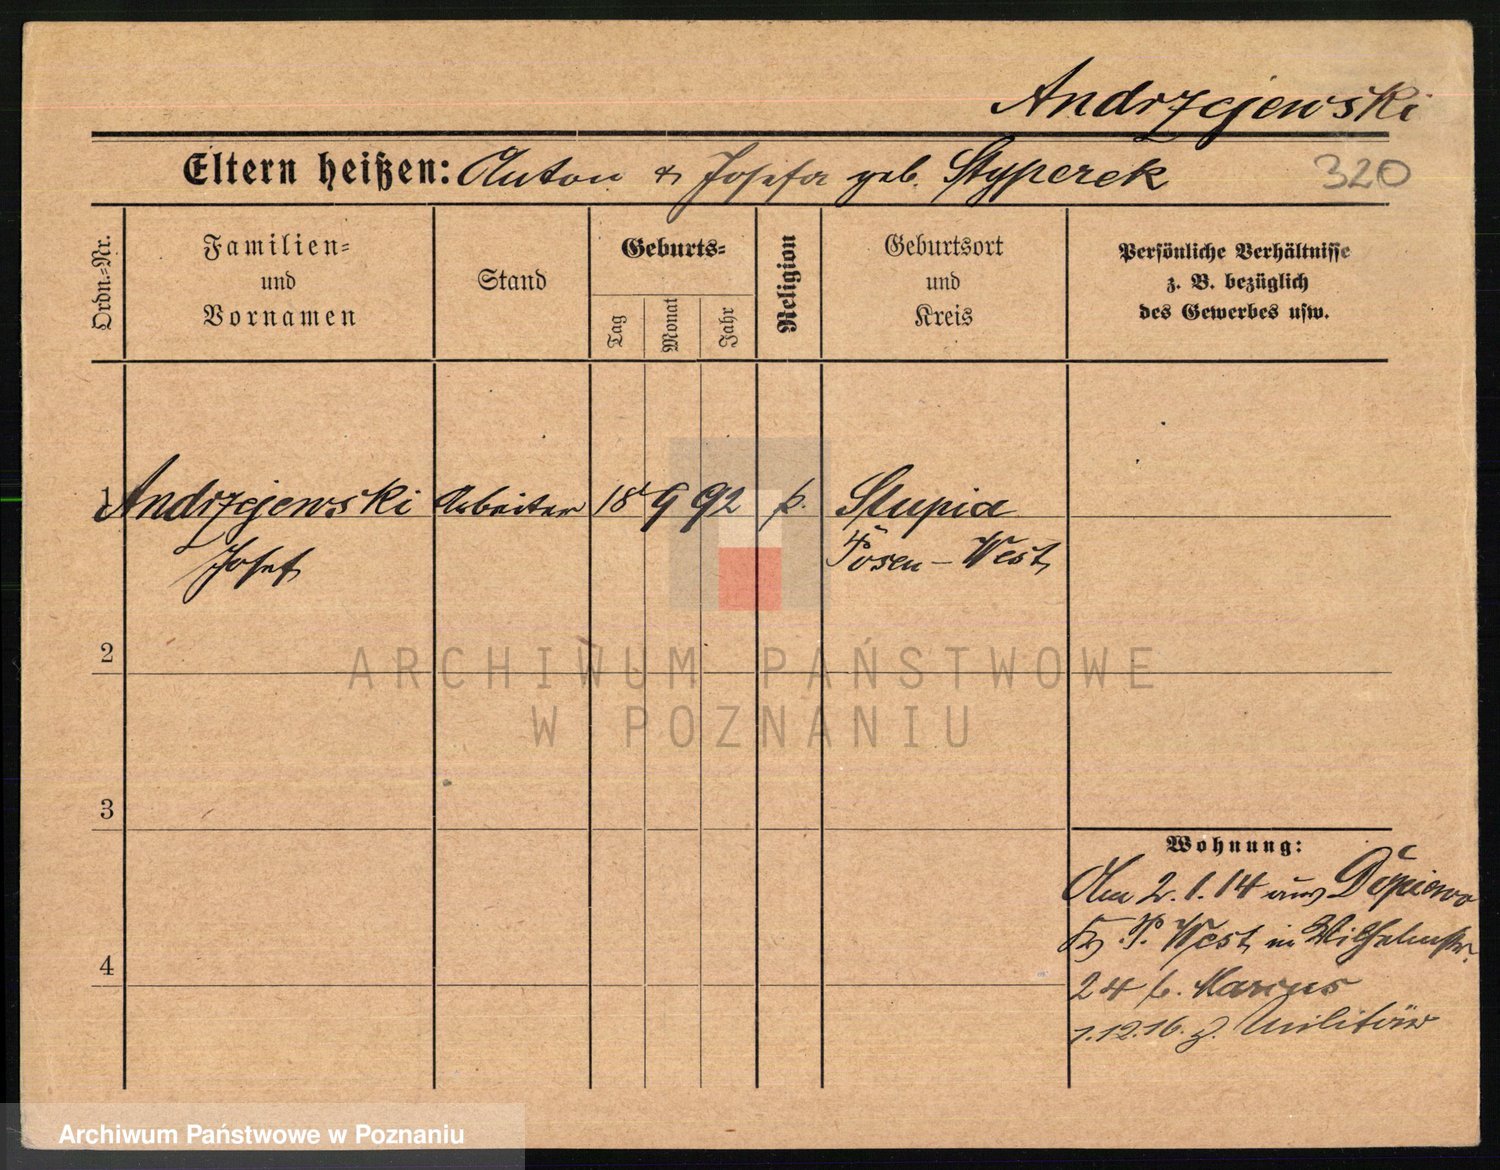 Andrzejewski
Eltern heißen: Anton & Josefa geb. Styperek
320
Ordn.-Nr.
Familien-
und
Vornamen
Stand
Geburts-
Tag
Monat
Jahr
Religion
Geburtsort
und
Kreis
Persönliche Verhältnisse
z. B. bezüglich
des Gewerbes usw.
1 Andrzejewski Arbeiter 18 9 92 k. Stupia
Josef Posen-West
2
ARCHIWUM PAŃSTWOWE
W POZNANIU
3
Wohnung:
Am 2.1.14 aus Dopiewo
Kr. P. West in Wilhelmstr.
4
24 b.
1.12.16. z. Militär
Archiwum Państwowe w Poznaniu